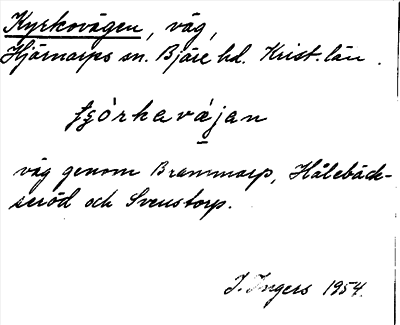 Kyrkovägen, väg,
Hjärnarps sn. Bjäre hd. Krist. län.
väg genom Brammarp, Hålebäck-
seröd och Svenstorp.
I. Ingers 1954.